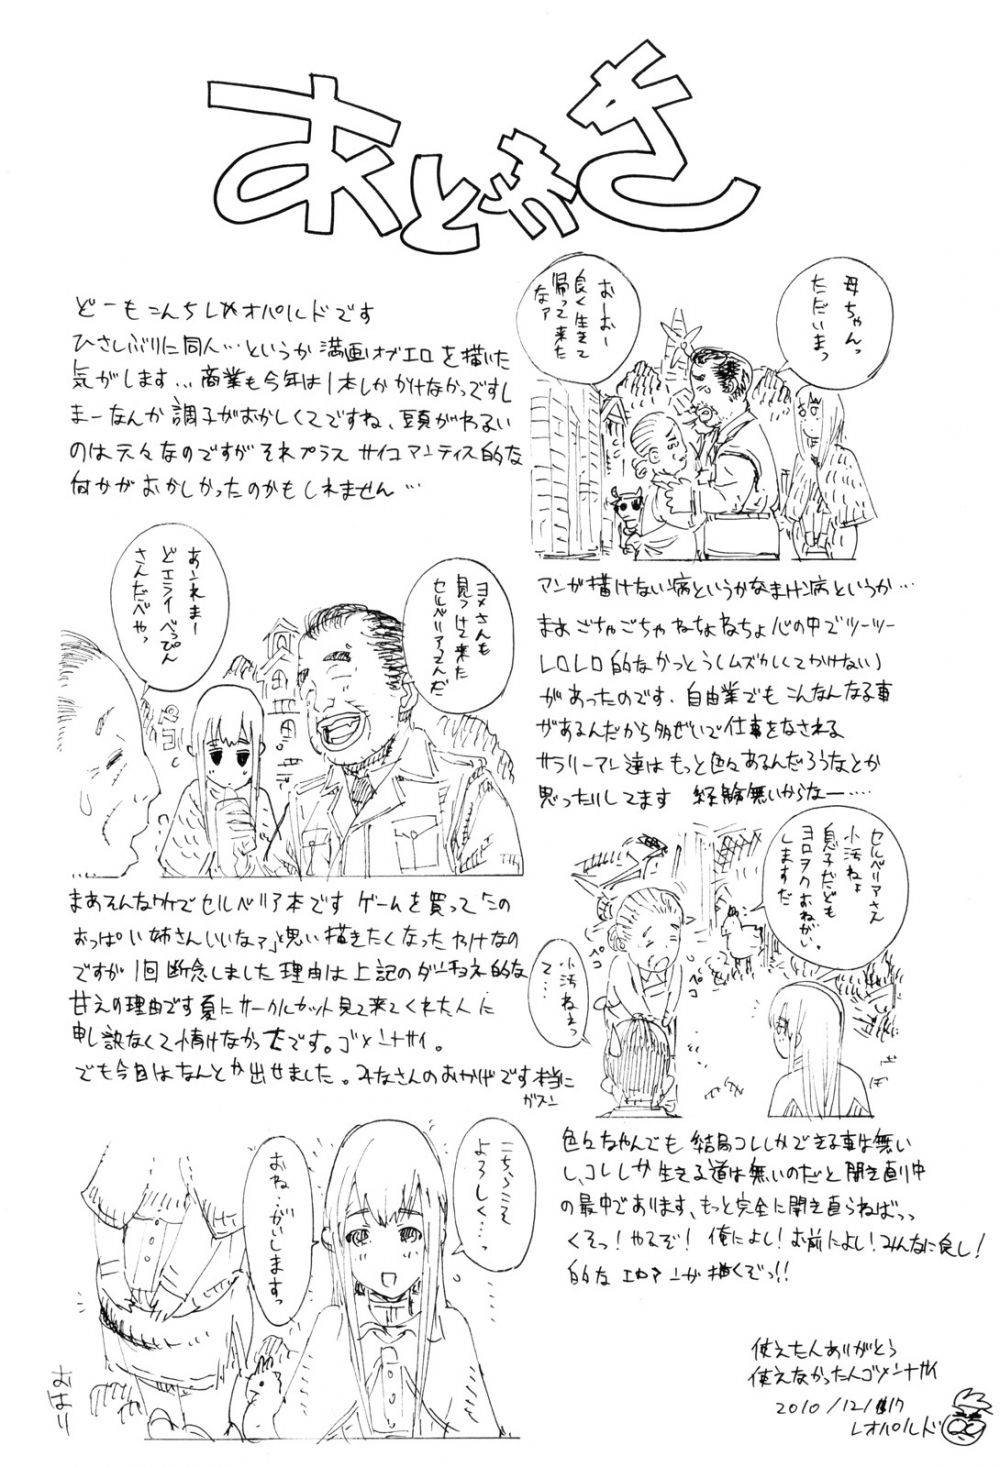 あとがき
どーもこんちしゃオパルドです
ひさしぶりに同人…というか満画オブエロを描いた
気がします…商業も今年は1本しかかけなかったですし
まーなんか調子がおかしくてですね、頭がわるい
のは元々なのですがそれプラス サイコマンティス的な
何かがおかしかったのかもしれません…
母ちゃんっ
ただいまっ
おーおー
良く生きて
帰って来た
なァ
マンガ描けない病というかなまけ病というか…
まあごちゃごちゃねちょねちょ心の中でツーツー
レロレロ的なかっとう(ムズカしくてかけない)
があったのです、自由業でもこんなんなる事
があるんだから多ぜいで仕事をなされる
サラリーマン達はもっと色々あるんだろうなとか
思ったりしてます 経験無いからなー……
ヨメさんも
見つけて来た
セルベリアってんだ
あんれまー
どエライべっぴん
さんだべやっ
ペコ
まあそんなワケでセルベリア本です ゲームを買って「この
おっぱい姉さんいいなァ」と思い描きたくなったわけなの
ですが1回断念しました理由は上記のダーチョネ的な
甘えの理由です夏にサークルカット見て来てくれた人に
申し訳なくて情けなかったです。ゴメンナサイ。
でも今回はなんとか出せました。みなさんのおかげです本当に
セルベリアさえ
小汚ねぇ
息子だども
ヨロスクおねがい
しますだ
小汚ねえっ
て…
ペコ
ペコ
色々なやんでも 結局コレしかできる事は無い
し、コレしか生きる道は無いのだと開き直り中
の最中であります、もっと完全に開き直らねばっっ
くそっ!やるぞ! 俺によし!お前によし!みんなに良し!
的な エロマンガ描くぞっ!!
こちらこそ
よろしく…っ
おね…がいしますっ
おはり
使えたんありがとう
使えなかったんゴメンナサイ
2010/12/17
レオパルド